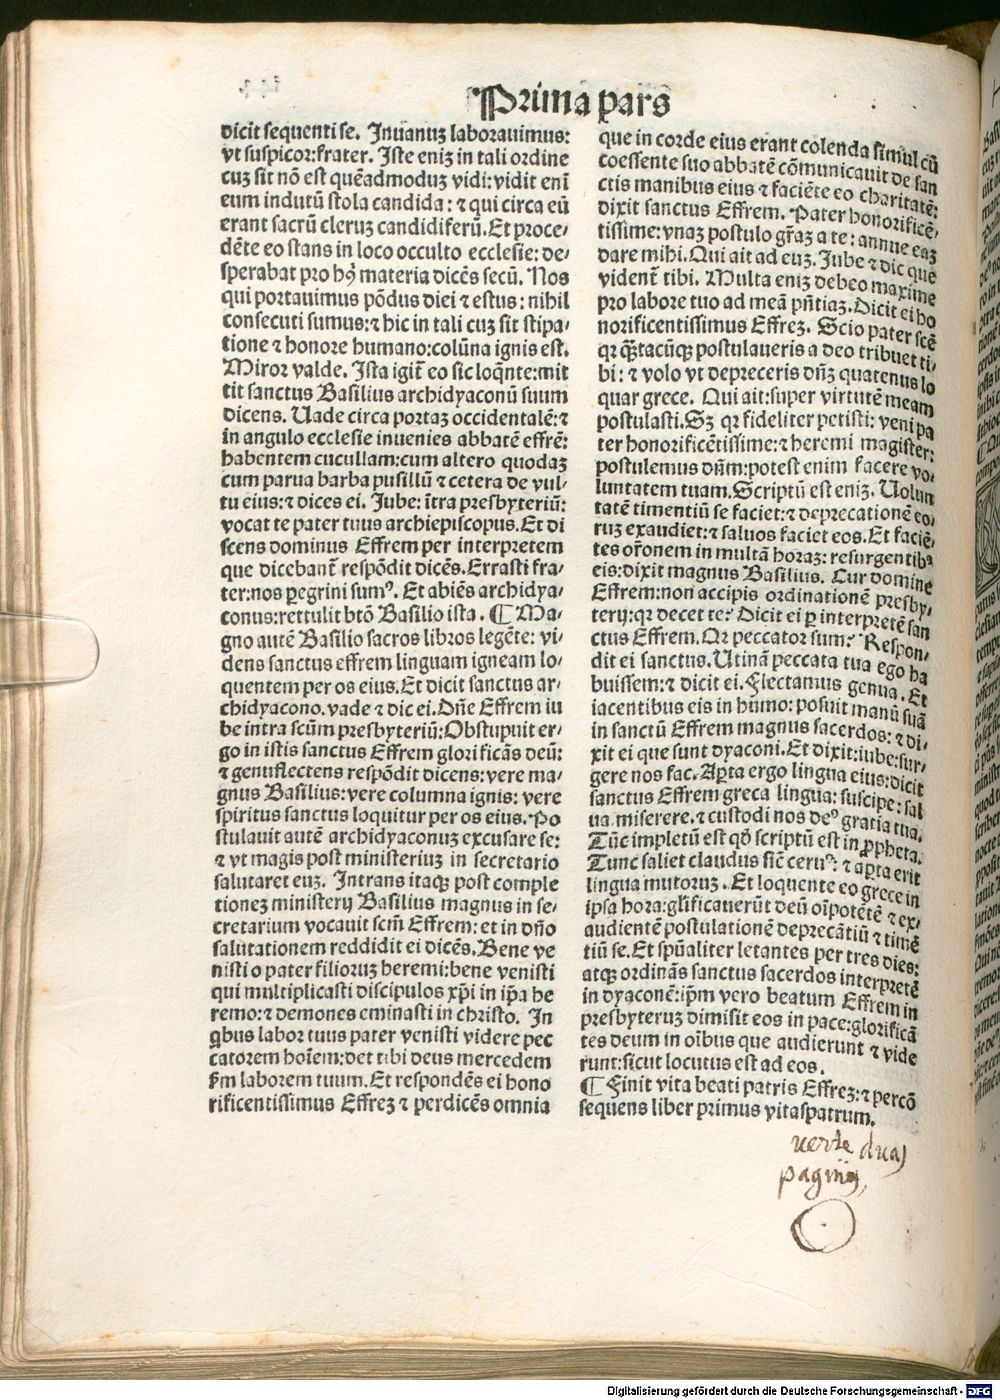 Prima pars
dicit sequenti se. Inuanuꝫ laborauimus:
vt suspicor:frater. Iste eniꝫ in tali ordine
cuꝫ sit nō est quēadmoduꝫ vidi:vidit enī
eum indutū stola candida: ⁊ qui circa eū
erant sacrū cleruꝫ candidiferū. Et proce⸗
dēte eo stans in loco occulto ecclesie: de⸗
sperabat pro hꝰ materia dicēs secū. Nos
qui portauimus pōdus diei ⁊ estus: nihil
consecuti sumus:⁊ hic in tali cuꝫ sit stipa⸗
tione ⁊ honore humano:colūna ignis est.
Miror valde. Ista igit̄ eo sic loqn̄te:mit
tit sanctus Basilius archidyaconū suum
dicens. Uade circa portaꝫ occidentalē:⁊
in angulo ecclesie inuenies abbatē effrē:
habentem cucullam:cum altero quodaꝫ
cum parua barba pusillū ⁊ cetera de vul⸗
tu eius:⁊ dices ei. Iube: ītra presbyteriū:
vocat te pater tuus archiepiscopus. Et di
scens dominus Effrem per interpretem
que dicebant̄ respōdit dicēs. Errasti fra⸗
ter:nos ꝑegrini sumꝰ. Et abiēs archidya⸗
conus:rettulit btō Basilio ista. ¶ Ma⸗
gno autē Basilio sacros libros legēte: vi⸗
dens sanctus effrem linguam igneam lo⸗
quentem per os eius. Et dicit sanctus ar⸗
chidyacono. vade ⁊ dic ei. Dn̄e Effrem iu
be intra scūm presbyteriū: Obstupuit er⸗
go in istis sanctus Effrem glorificās deū:
⁊ genuflectens respōdit dicens:vere ma⸗
gnus Basilius: vere columna ignis: vere
spiritus sanctus loquitur per os eius. Po
stulauit autē archidyaconuꝫ excusare se:
⁊ vt magis post ministeriuꝫ in secretario
salutaret euꝫ. Intrans itaqꝫ post comple
tioneꝫ ministerij Basilius magnus in se⸗
cretarium vocauit scm̄ Effrem: et in dn̄o
salutationem reddidit ei dicēs. Bene ve
nisti o pater filioruꝫ heremi:bene venisti
qui multiplicasti discipulos xp̄i in ip̄a he
remo:⁊ demones eminasti in christo. In
qbus labor tuus pater venisti videre pec
catorem hoīem: det tibi deus mercedem
fm laborem tuum. Et respondēs ei hono
rificentissimus Effreꝫ ⁊ perdicēs omnia
que in corde eius erant colenda simul cū
coessente suo abbatē cōmunicauit de san
ctis manibus eius ⁊ faciēte eo charitatē:
dixit sanctus Effrem. Pater honorificē⸗
tissime: vnaꝫ postulo gr̄aꝫ a te: annue eaꝫ
dare mihi. Qui ait ad euꝫ. Iube ⁊ dic que
vident̄ tibi. Multa eniꝫ debeo maxime
pro labore tuo ad meā pn̄tiaꝫ. Dicit ei ho
norificentissimus Effreꝫ. Scio pater scē
qꝛ qūtacūqꝫ postulaueris a deo tribuet ti⸗
bi: ⁊ volo vt depreceris dn̄ꝫ quatenus lo
quar grece. Qui ait:super virtutē meam
postulasti. Sꝫ qꝛ fideliter petisti: veni pa
ter honorificētissime:⁊ heremi magister:
postulemus dn̄m:potest enim facere vo⸗
luntatem tuam. Scriptū est eniꝫ. Uolun
tatē timentiū se faciet:⁊ deprecationē eo⸗
ruꝫ exaudiet:⁊ saluos faciet eos. Et faciē⸗
tes or̄onem in multā horaꝫ: resurgentibꝰ
eis:dixit magnus Basilius. Cur domine
Effrem:non accipis ordinationē presby⸗
terij:qꝛ decet te? Dicit ei ꝑ interpretē san
ctus Effrem. Qꝛ peccator sum? Respon⸗
dit ei sanctus. Utinā peccata tua ego ha
buissem:⁊ dicit ei. Flectamus genua. Et
iacentibus eis in humo: posuit manū suā
in sanctū Effrem magnus sacerdos: ⁊ di⸗
xit ei que sunt dyaconi. Et dixit:iube:sur⸗
gere nos fac. Aꝑta ergo lingua eius:dicit
sanctus Effrem greca lingua: suscipe: sal
ua miserere, ⁊ custodi nos deꝰ gratia tua.
Tūc impletū est qd̄ scriptū est in ꝓpheta.
Tunc saliet claudus sic̄ ceruꝰ: ⁊ aꝑta erit
lingua mutoruꝫ. Et loquente eo grece in
ipsa hora: gl̄ificauerūt deū oīpotētē ⁊ ex⸗
audientē postulationē deprecātiū ⁊ timē
tiū se. Et sp̄ualiter letantes per tres dies:
atqꝫ ordinās sanctus sacerdos interpretē
in dyaconē:ip̄m vero beatum Effrem in
presbyteruꝫ dimisit eos in pace:glorificā
tes deum in oībus que audierunt ⁊ vide
runt:sicut locutus est ad eos.
¶ Finit vita beati patris Effreꝫ:⁊ ꝑercō
sequens liber primus vitaspatrum.
verte duas
paginas,
Digitalisierung gefördert durch die Deutsche Forschungsgemeinschaft - DFG